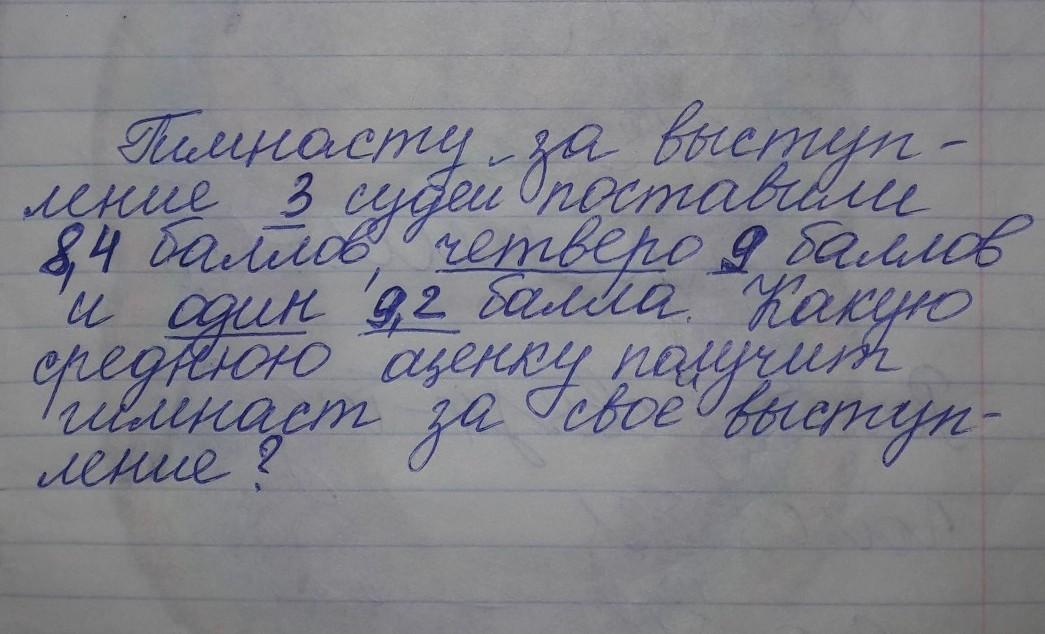 Гимнасту за выступ-
ление 3 судеи поставили
8,4 баллов, четверо 9 баллов
и один 9,2 балла. Какую
среднюю оценку получит
гимнаст за своё выступ-
ление?